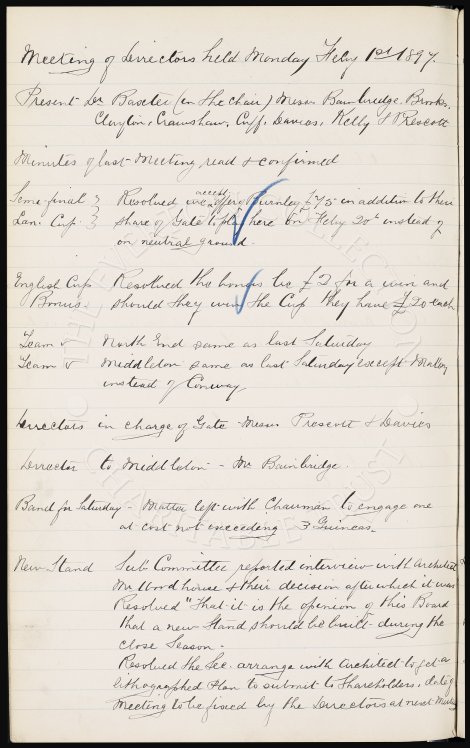 Meeting of Directors held Monday Feby 1st 1897.
Present Dr Baxter (in the chair) Messrs Bainbridge, Brooks,
Clayton, Crawshaw, Cuff, Davies, Kelly & Prescott
Minutes of last Meeting read & confirmed
Semi-final } Resolved we accept offer Burnley £75 in addition to their
Lan: Cup. } share of Gate to play here on Feby 20th instead of
on neutral ground.
English Cup Resolved the bonus be £2 for a win and
Bonus. should they win the Cup they have £20 each
Team v North End same as last Saturday
Team v Middleton same as last Saturday except
instead of Conway
Directors in charge of Gate - Messrs Prescott & Davies
Director to Middleton - Mr Bainbridge.
Band for Saturday - Matter left with Chairman to engage one
at cost not exceeding 3 Guineas.
New Stand Sub Committee reported interview with Architect
Mr Woodhouse & their decision after which it was
Resolved "That it is the opinion of this Board
that a new Stand should be built during the
close Season.
Resolved the Sec. arrange with Architect to get a
lithographed Plan to submit to Shareholders, date of
Meeting to be fixed by the Directors at next Meeting
THE EVERTON COLLECTION
CHARITABLE TRUST